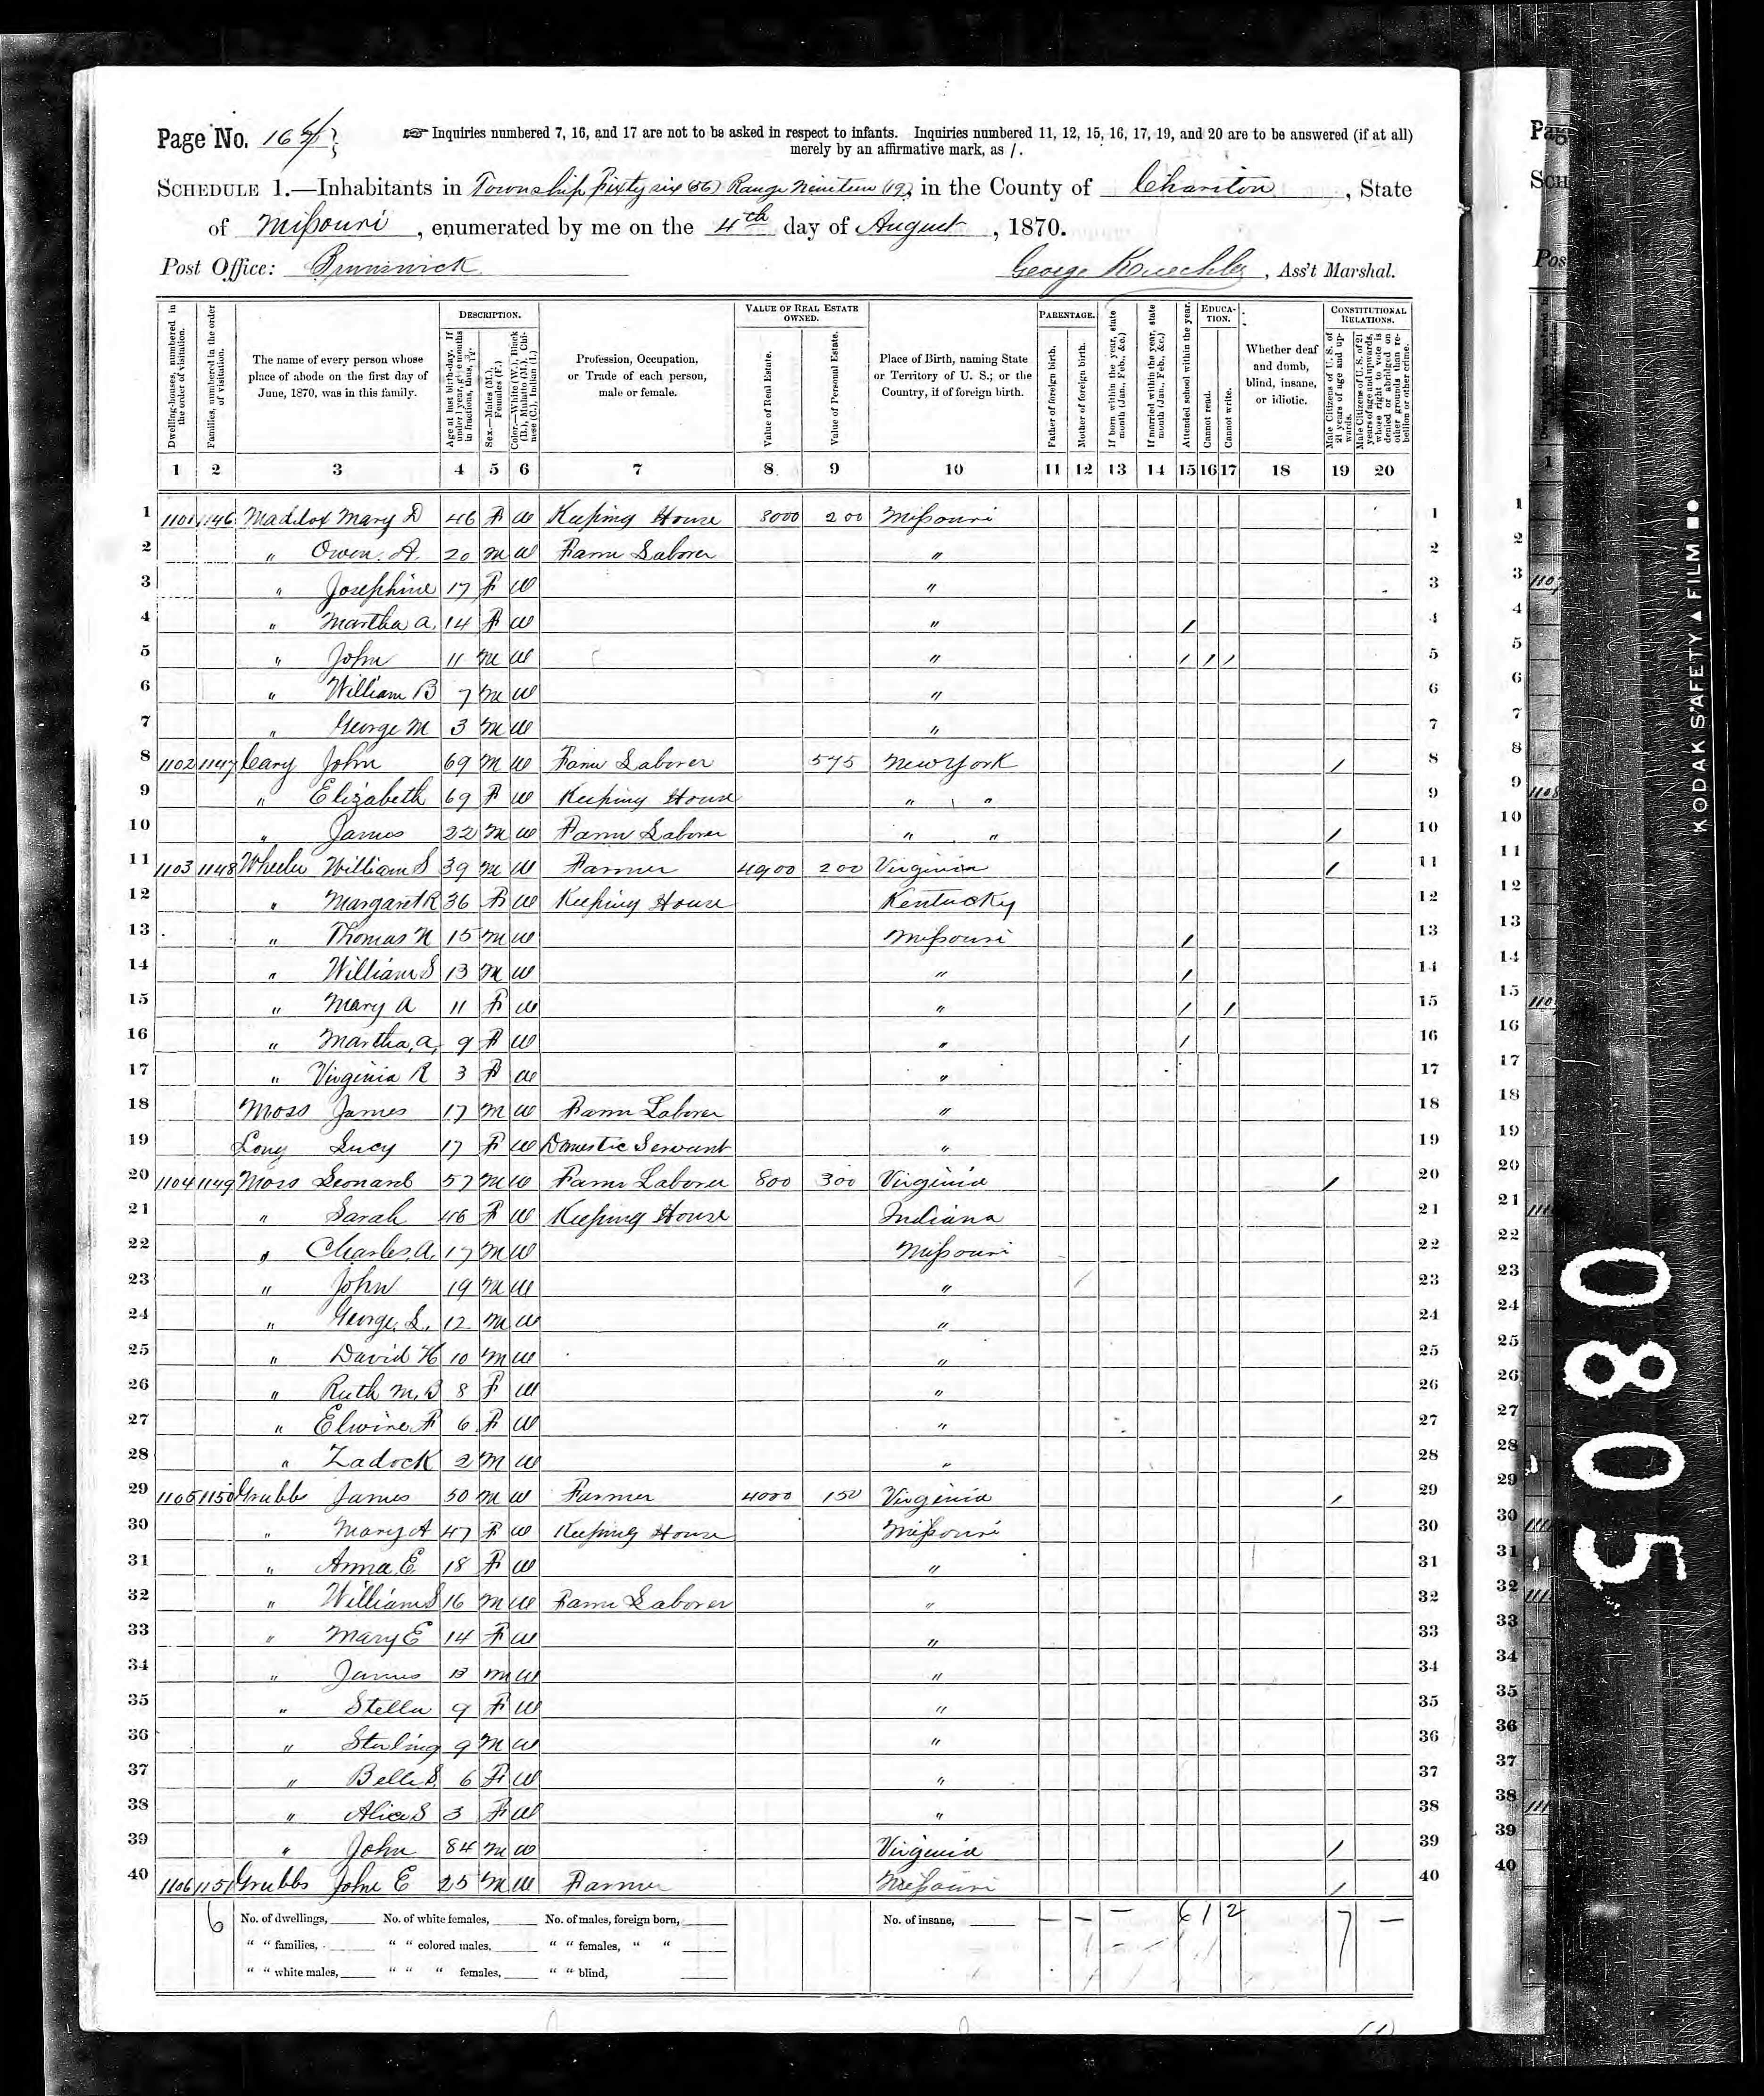 Page No. 164
☞ Inquiries numbered 7, 16, and 17 are not to be asked in respect to infants. Inquiries numbered 11, 12, 15, 16, 17, 19, and 20 are to be answered (if at all)
merely by an affirmative mark, as /.
SCHEDULE 1.—Inhabitants in Township Fifty six (56) Range Nineteen (19), in the County of Chariton, State
of Missouri, enumerated by me on the 4th day of August, 1870.
Post Office: Brunswick
George Kuechler, Ass't Marshal.
DESCRIPTION.
VALUE OF REAL ESTATE OWNED.
PARENTAGE.
EDUCATION.
CONSTITUTIONAL RELATIONS.
Dwelling-houses, numbered in the order of visitation.
Families, numbered in the order of visitation.
The name of every person whose place of abode on the first day of June, 1870, was in this family.
Age at last birth-day. If under 1 year, give months in fractions, thus, 3/12.
Sex.—Males (M.), Females (F.)
Color.—White (W.), Black (B.), Mulatto (M.), Chinese (C.), Indian (I.)
Profession, Occupation, or Trade of each person, male or female.
Value of Real Estate.
Value of Personal Estate.
Place of Birth, naming State or Territory of U. S.; or the Country, if of foreign birth.
Father of foreign birth.
Mother of foreign birth.
If born within the year, state month (Jan., Feb., &c.)
If married within the year, state month (Jan., Feb., &c.)
Attended school within the year.
Cannot read.
Cannot write.
Whether deaf and dumb, blind, insane, or idiotic.
Male Citizens of U. S. of 21 years of age and upwards.
Male Citizens of U. S. of 21 years of age and upwards, whose right to vote is denied or abridged on other grounds than rebellion or other crime.
1 2 3 4 5 6 7 8 9 10 11 12 13 14 15 16 17 18 19 20
1 1101 1146 Maddox Mary D 46 F W Keeping House 8000 200 Missouri 1
2 " Owen A. 20 M W Farm Laborer " 2
3 " Josephine 17 F W " 3
4 " Martha A. 14 F W " / 4
5 " John 11 M W " / / / 5
6 " William B 7 M W " 6
7 " George M 3 M W " 7
8 1102 1147 Cary John 69 M W Farm Laborer 575 New York / 8
9 " Elizabeth 69 F W Keeping House " " 9
10 " James 22 M W Farm Laborer " " / 10
11 1103 1148 Wheeler William S 39 M W Farmer 4900 200 Virginia / 11
12 " Margaret R 36 F W Keeping House Kentucky 12
13 " Thomas N 15 M W Missouri / 13
14 " William S 13 M W " / 14
15 " Mary A 11 F W " / / 15
16 " Martha A. 9 F W " / 16
17 " Virginia R 3 F W " 17
18 Moss James 17 M W Farm Laborer " 18
19 Long Lucy 17 F W Domestic Servant " 19
20 1104 1149 Moss Leonard 57 M W Farm Laborer 800 300 Virginia / 20
21 " Sarah 46 F W Keeping House Indiana 21
22 " Charles A. 17 M W Missouri 22
23 " John 19 M W " 23
24 " George L. 12 M W " 24
25 " David H 10 M W " 25
26 " Ruth M. B 8 F W " 26
27 " Elwine F 6 F W " 27
28 " Zadock 2 M W " 28
29 1105 1150 Grubbs James 50 M W Farmer 4000 150 Virginia / 29
30 " Mary A 47 F W Keeping House Missouri 30
31 " Anna E 18 F W " 31
32 " William S 16 M W Farm Laborer " 32
33 " Mary E 14 F W " 33
34 " James 13 M W " 34
35 " Stella 9 F W " 35
36 " Sterling 9 M W " 36
37 " Belle S. 6 F W " 37
38 " Alice S 3 F W " 38
39 " John 84 M W Virginia / 39
40 1106 1151 Grubbs John E 25 M W Farmer Missouri / 40
6 No. of dwellings, No. of white females, No. of males, foreign born, No. of insane, — — — 6 1 2 7 —
" " families, " " colored males, " " females, " "
" " white males, " " " females, " " blind,
KODAK SAFETY ▲ FILM
5080